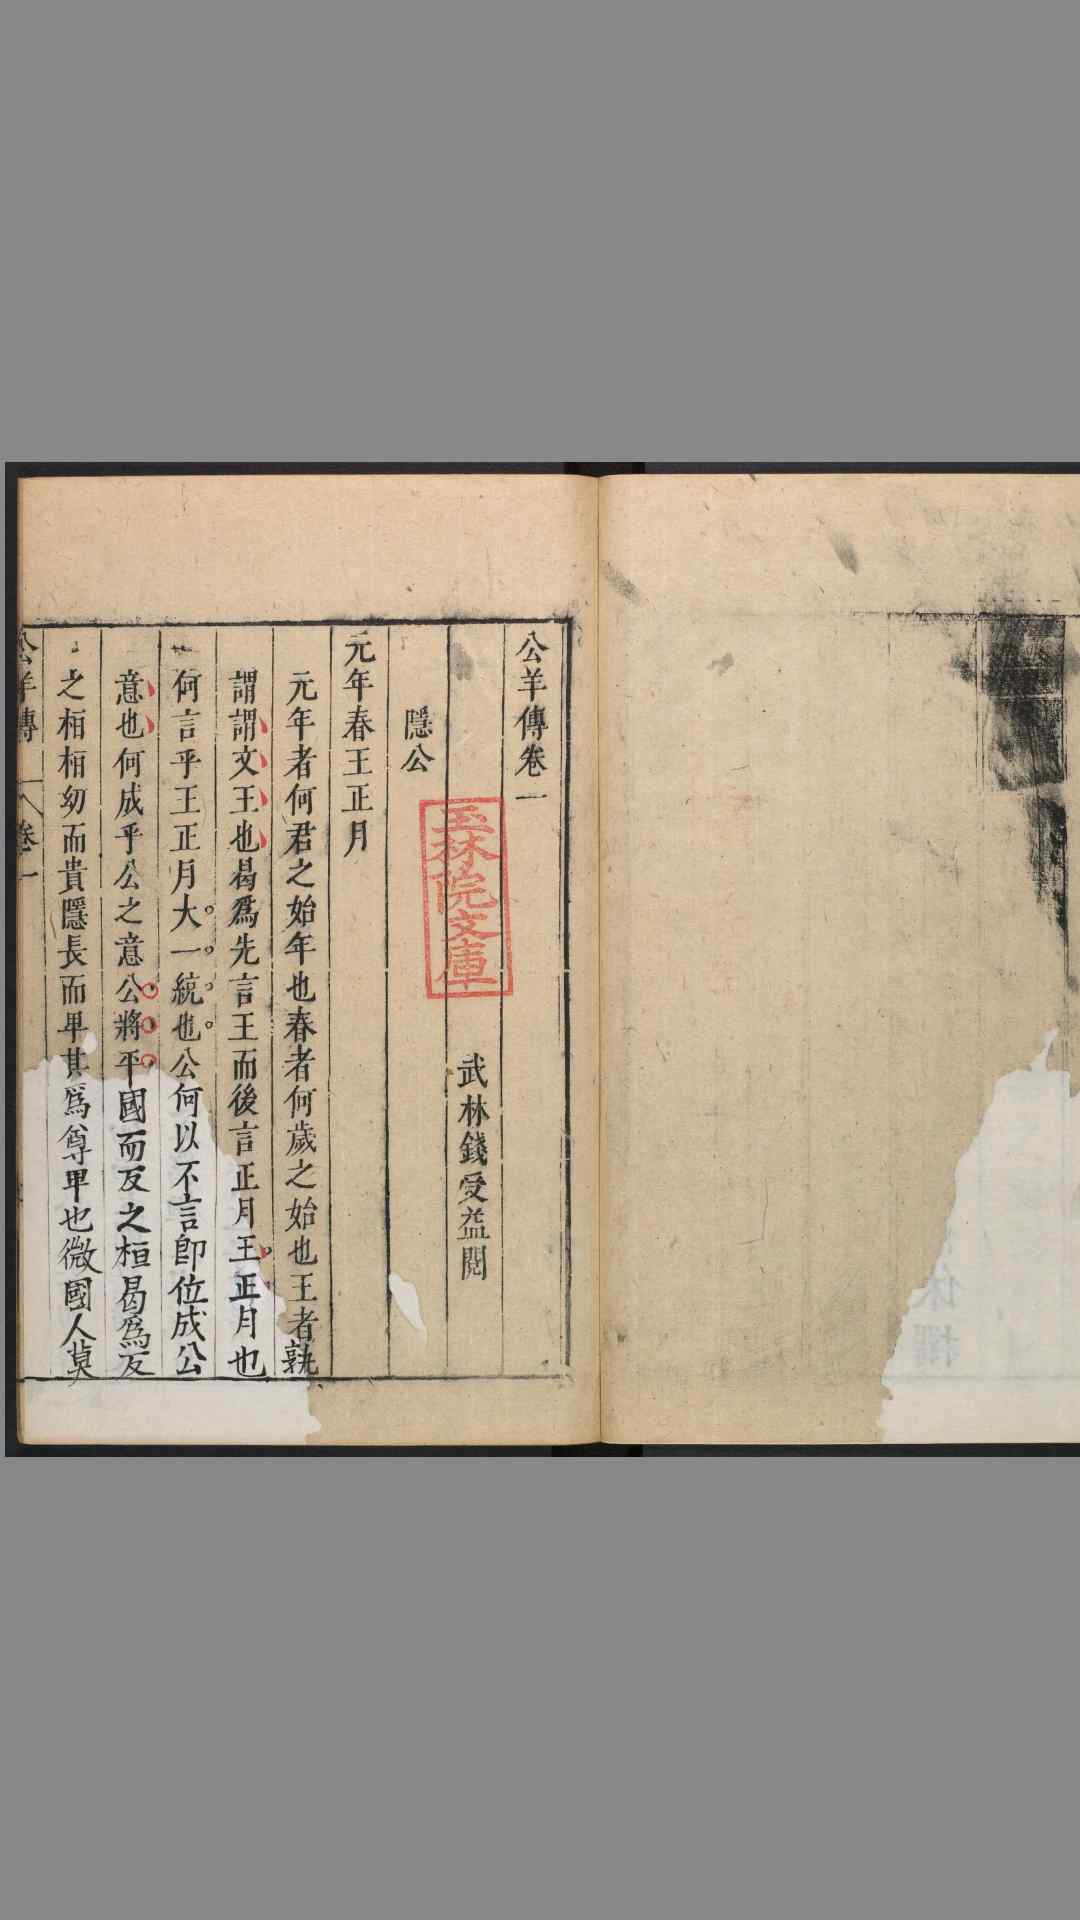 公羊傳卷一
武林錢受益閱
玉林院文庫
隱公
元年春王正月
元年者何君之始年也春者何歲之始也王者孰
謂謂文王也曷爲先言王而後言正月王正月也
何言乎王正月大一統也公何以不言卽位成公
意也何成乎公之意公將平國而反之桓曷爲反
之桓桓幼而貴隱長而卑其爲尊卑也微國人莫
公羊傳 卷一